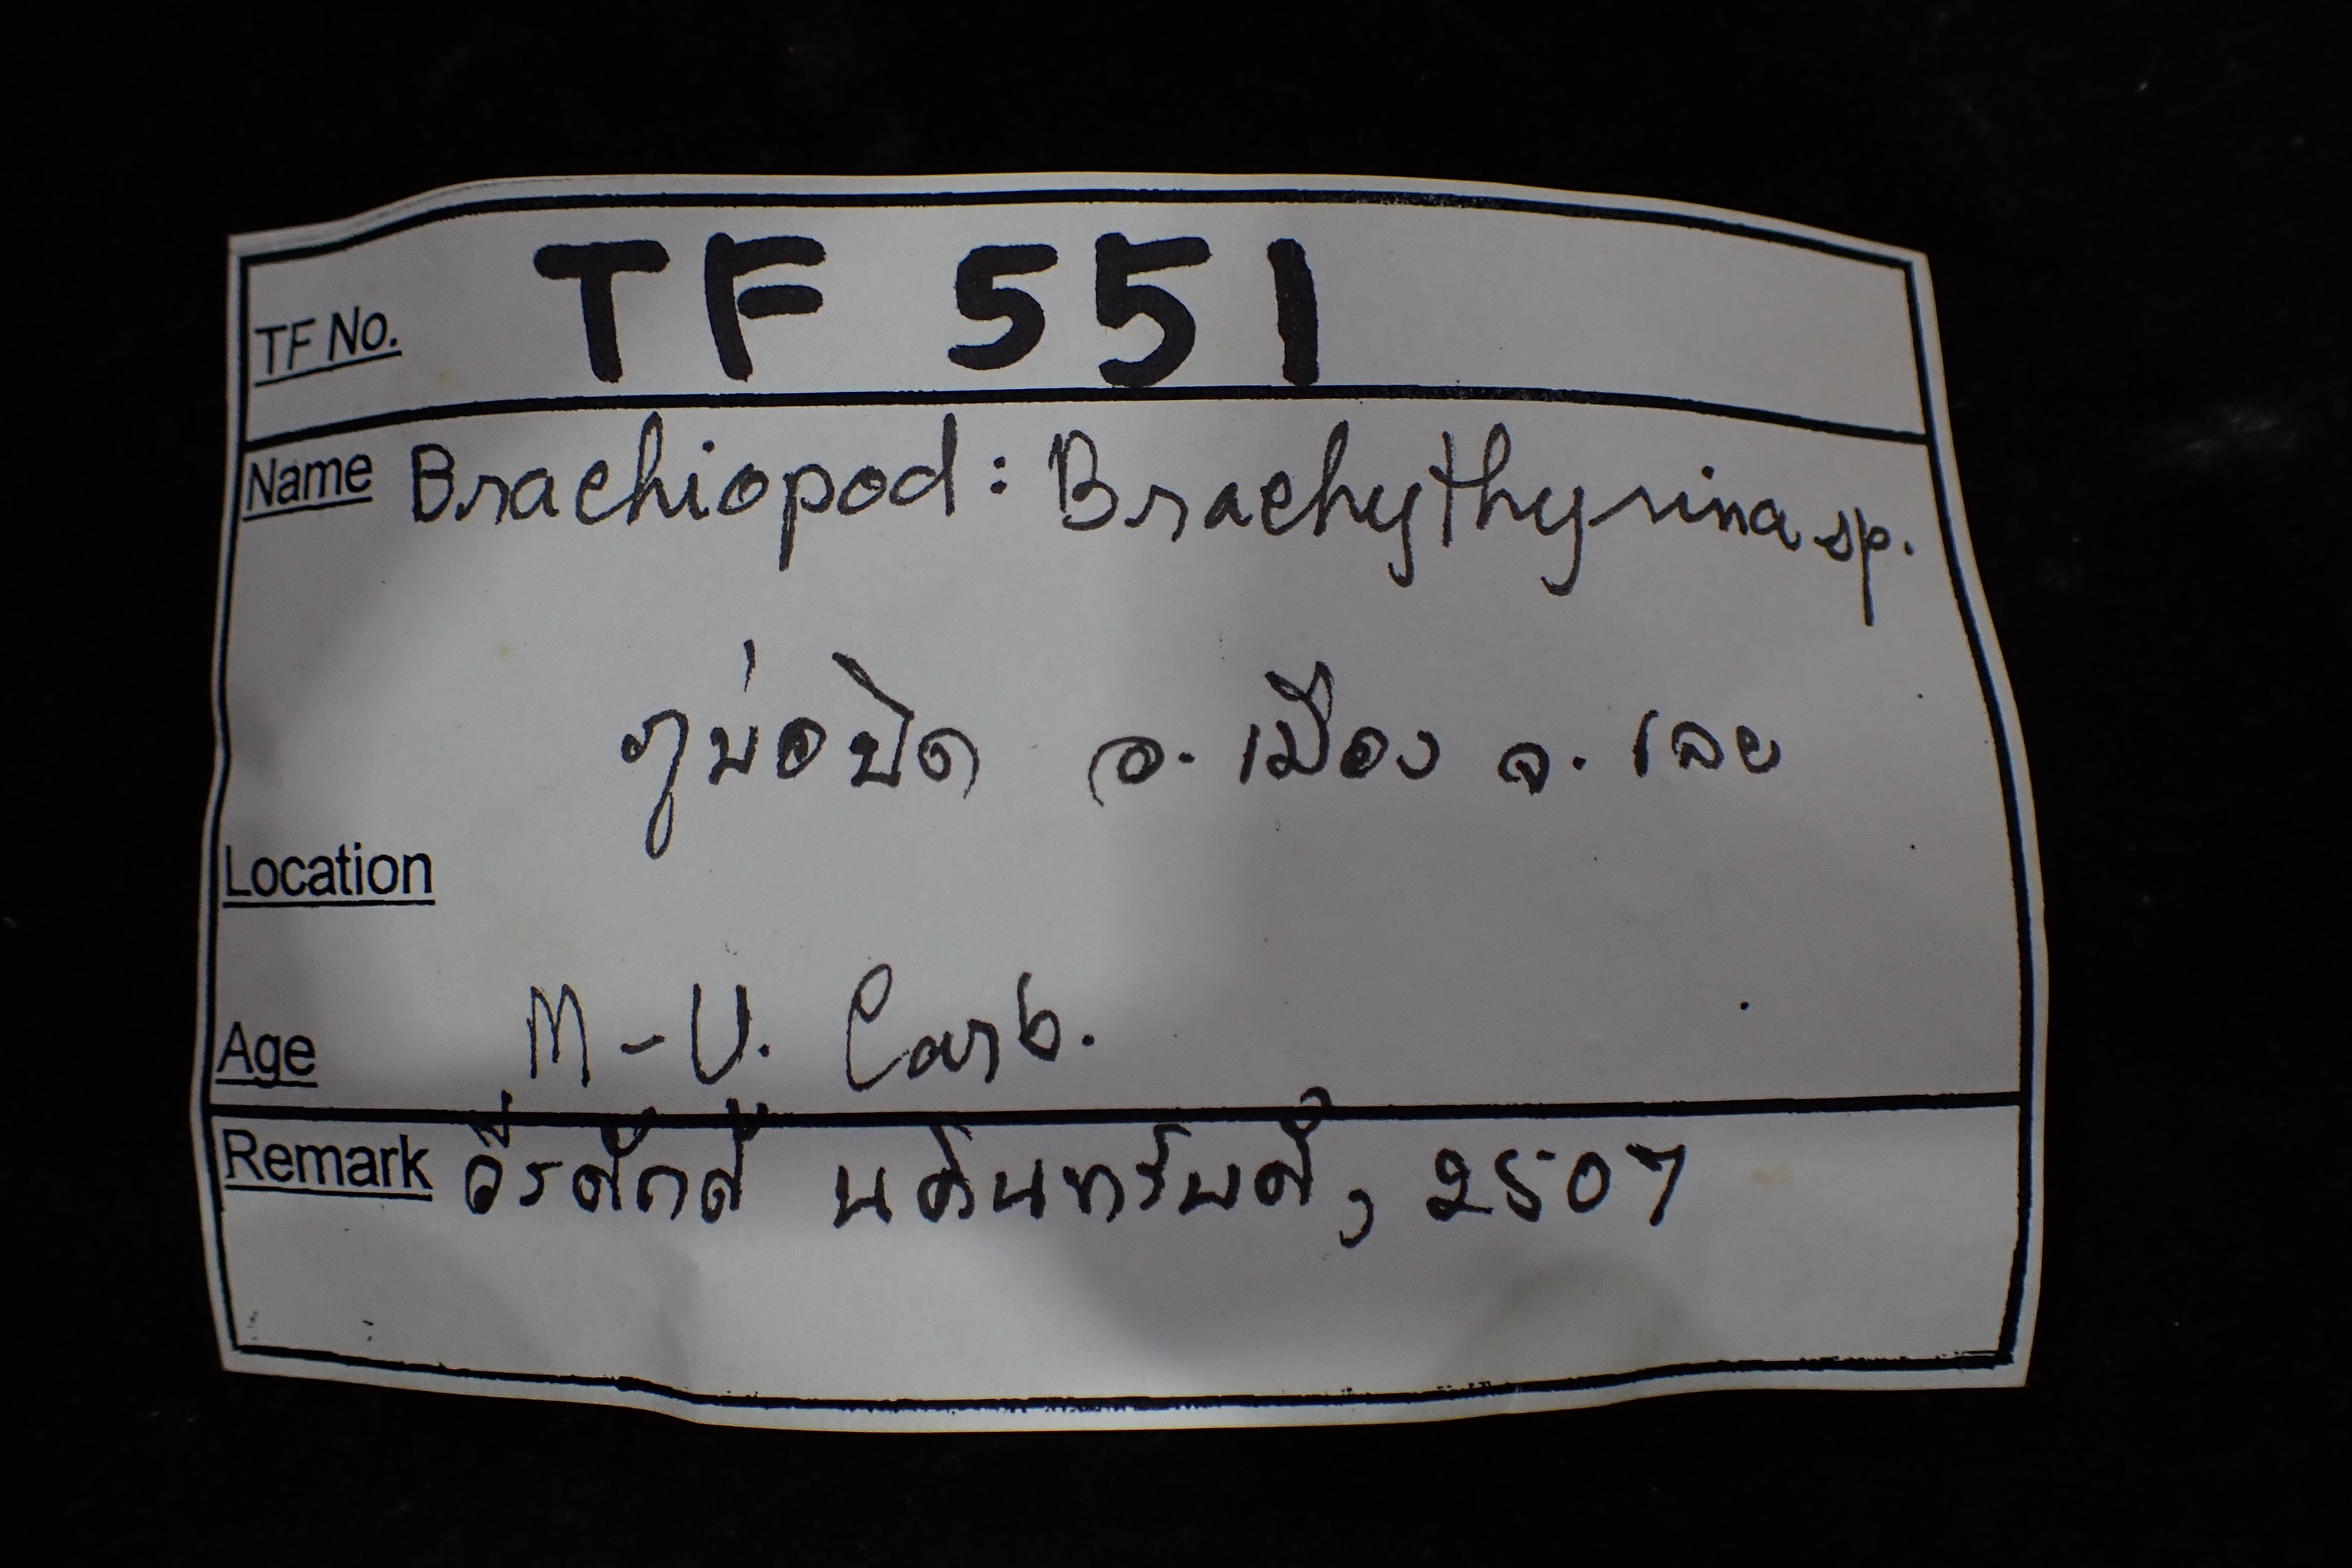 TF No. TF 551
Name Brachiopod: Brachythyrina sp.
ภูบ่อบิด อ. เมือง จ. เลย
Location
Age M-U. Carb.
Remark วีรศักดิ์ นคินทร์บดี, 2507